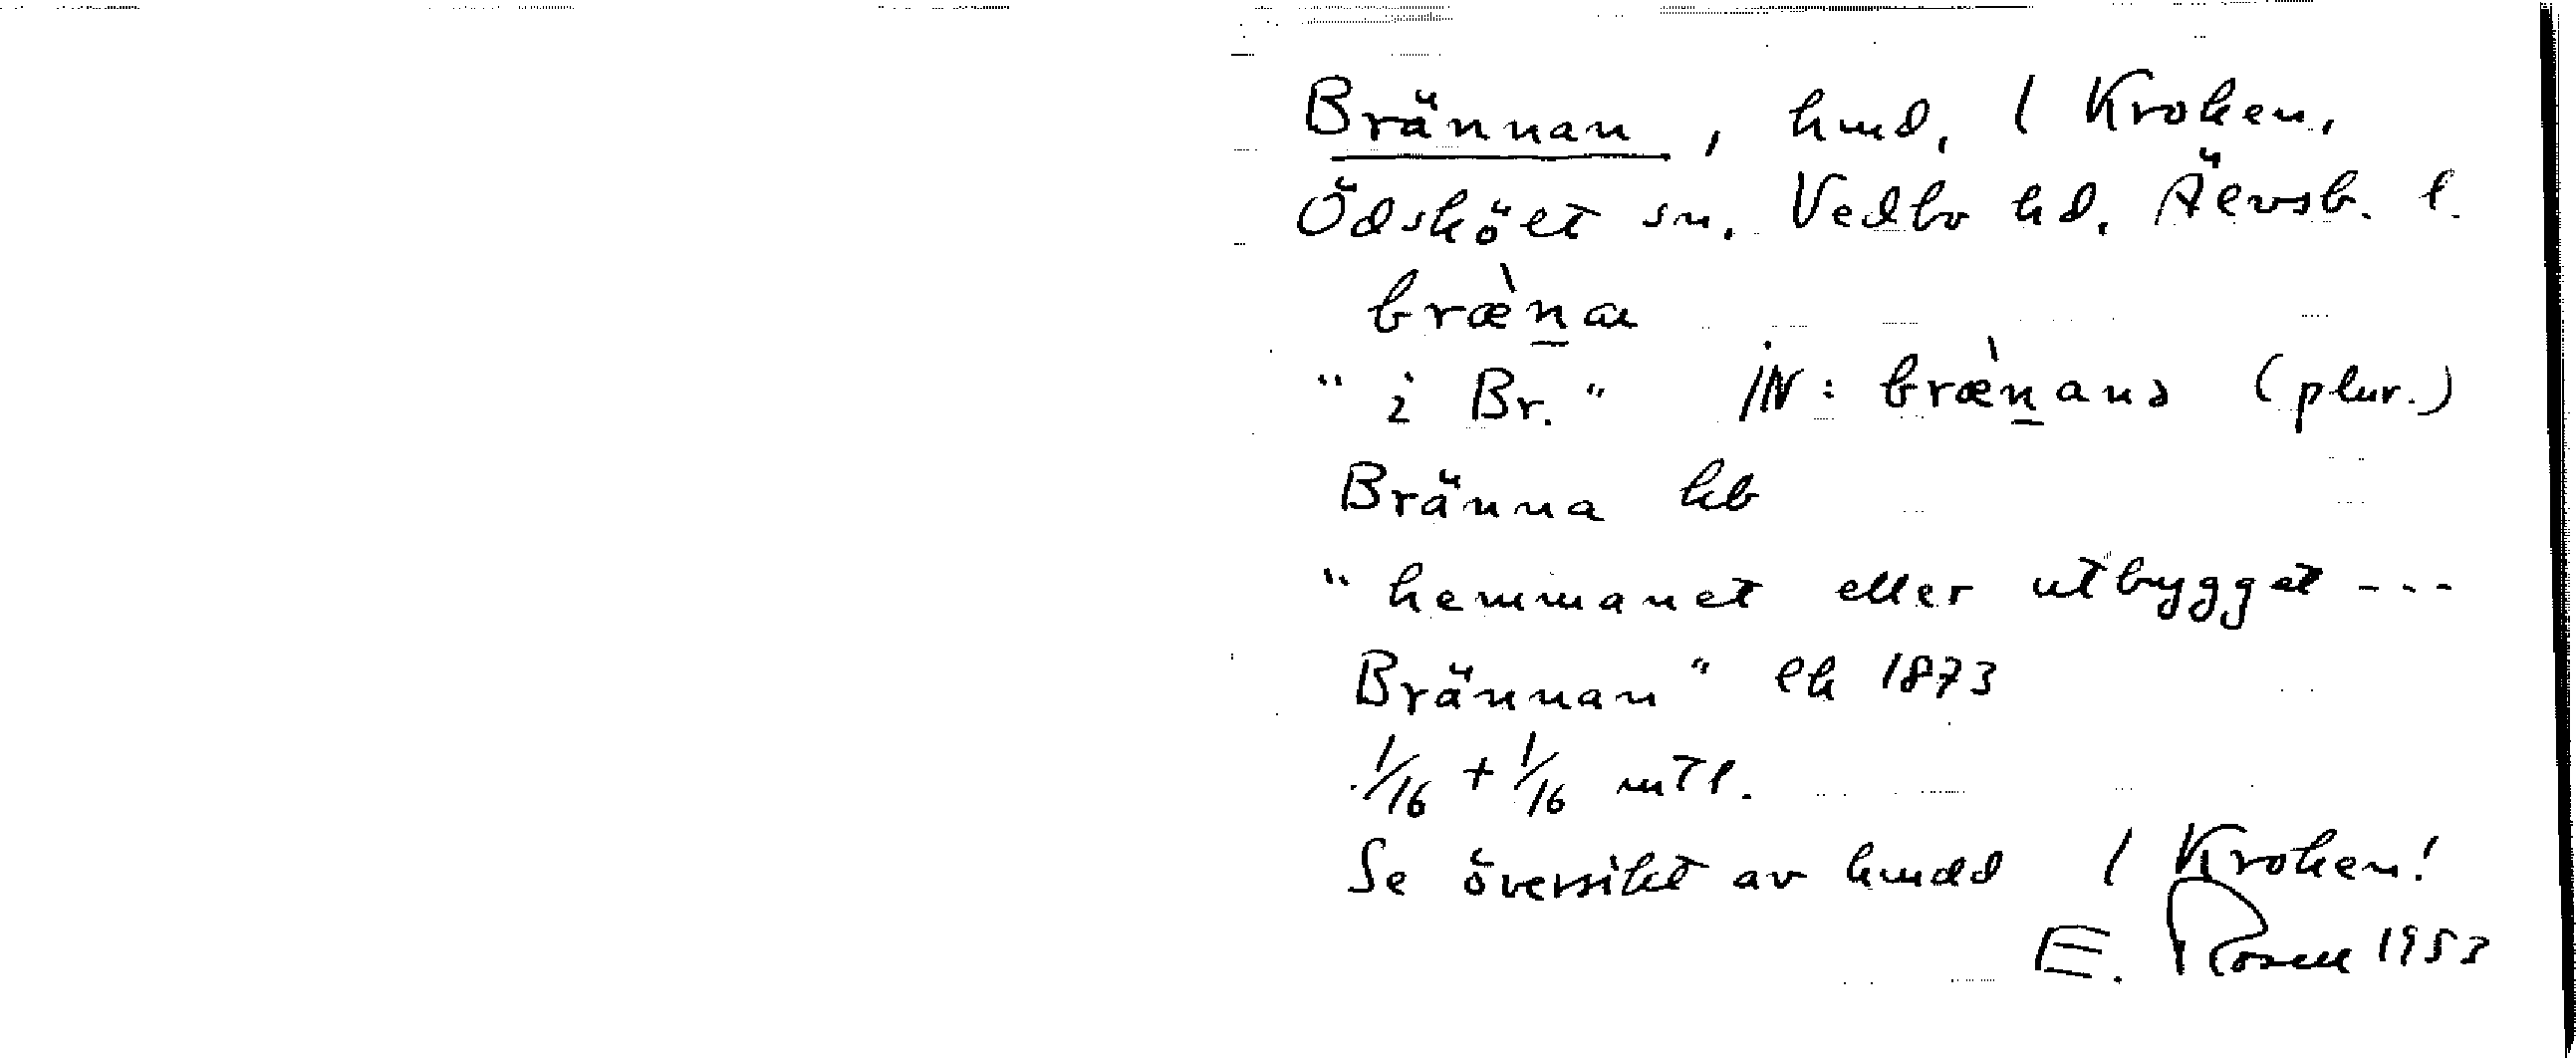 Brännan, hmd, 1 Kroken,
Ödsköet sn. Vedbo hd. Älvsb. l.
bræ̀na
"i Br." IN: bræ̀nans (plur.)
Bränna kb
"hemmanet eller utbygget ---
Brännan" ek 1873
1/16 + 1/16 mtl.
Se översikt av hmdd 1 Kroken!
E. Rosell 1953